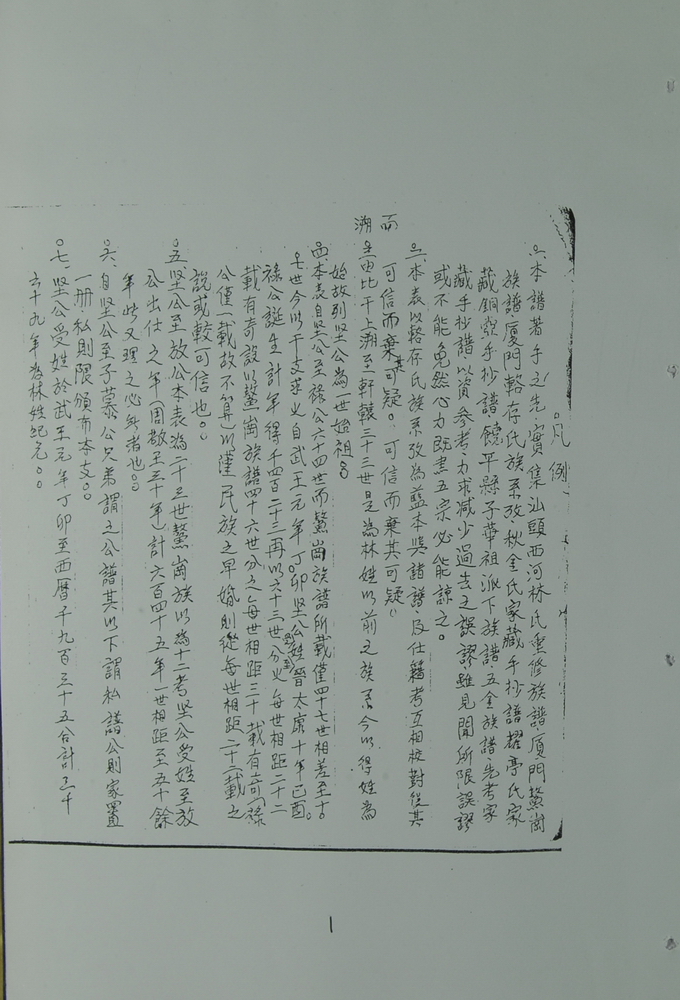 凡例
一、本譜著手之先實集汕頭西河林氏重修族譜厦門鰲崗
族譜、厦門輅存氏族系攷、秋金氏家藏手抄譜、耀亭氏家
藏銅 手抄譜、饒平縣子華祖派下族譜、五全族譜、先考家
藏手抄譜以資参考、力求减少過去之誤謬、雖見聞所限誤謬
或不能免然心力既盡五宗必能諒之。
二、本表以輅存氏族系攷為藍本與諸譜及仕籍考互相校對從其
可信而棄其可疑。可信而棄其可疑。
而
溯
三、由比干上溯至軒轅三十三世是為林姓以前之族系今以得姓為
始故列坚公為一世始祖。
四、本表自坚公至禄公六十四世而鰲崗族譜所載僅四十七世相差至十
七世今以干支求之自武王元年丁卯坚公受姓到晉太康十年己酉
禄公誕生計年得千四百二十三再以六十三世分之每世相距二十二
載有奇設以鰲崗族譜四十六世分之每世相距三十載有奇(禄
公僅一載故不算)以漢民族之早婚則從每世相距二十二載之
説或較可信也。
五、坚公至放公本表為二十三世鰲崗族以為十二考坚公受姓至放
公出仕之年(周敬王三十年)計六百四十五年一世相距至五十餘
年此又理之必無者也。
六、自坚公至子慕公兄弟謂之公譜其以下謂私譜公則家置
一册、私則限頒布本支。
七、坚公受姓於武王元年丁卯至西曆千九百三十五合計三千
六十九年為林姓紀元。
1